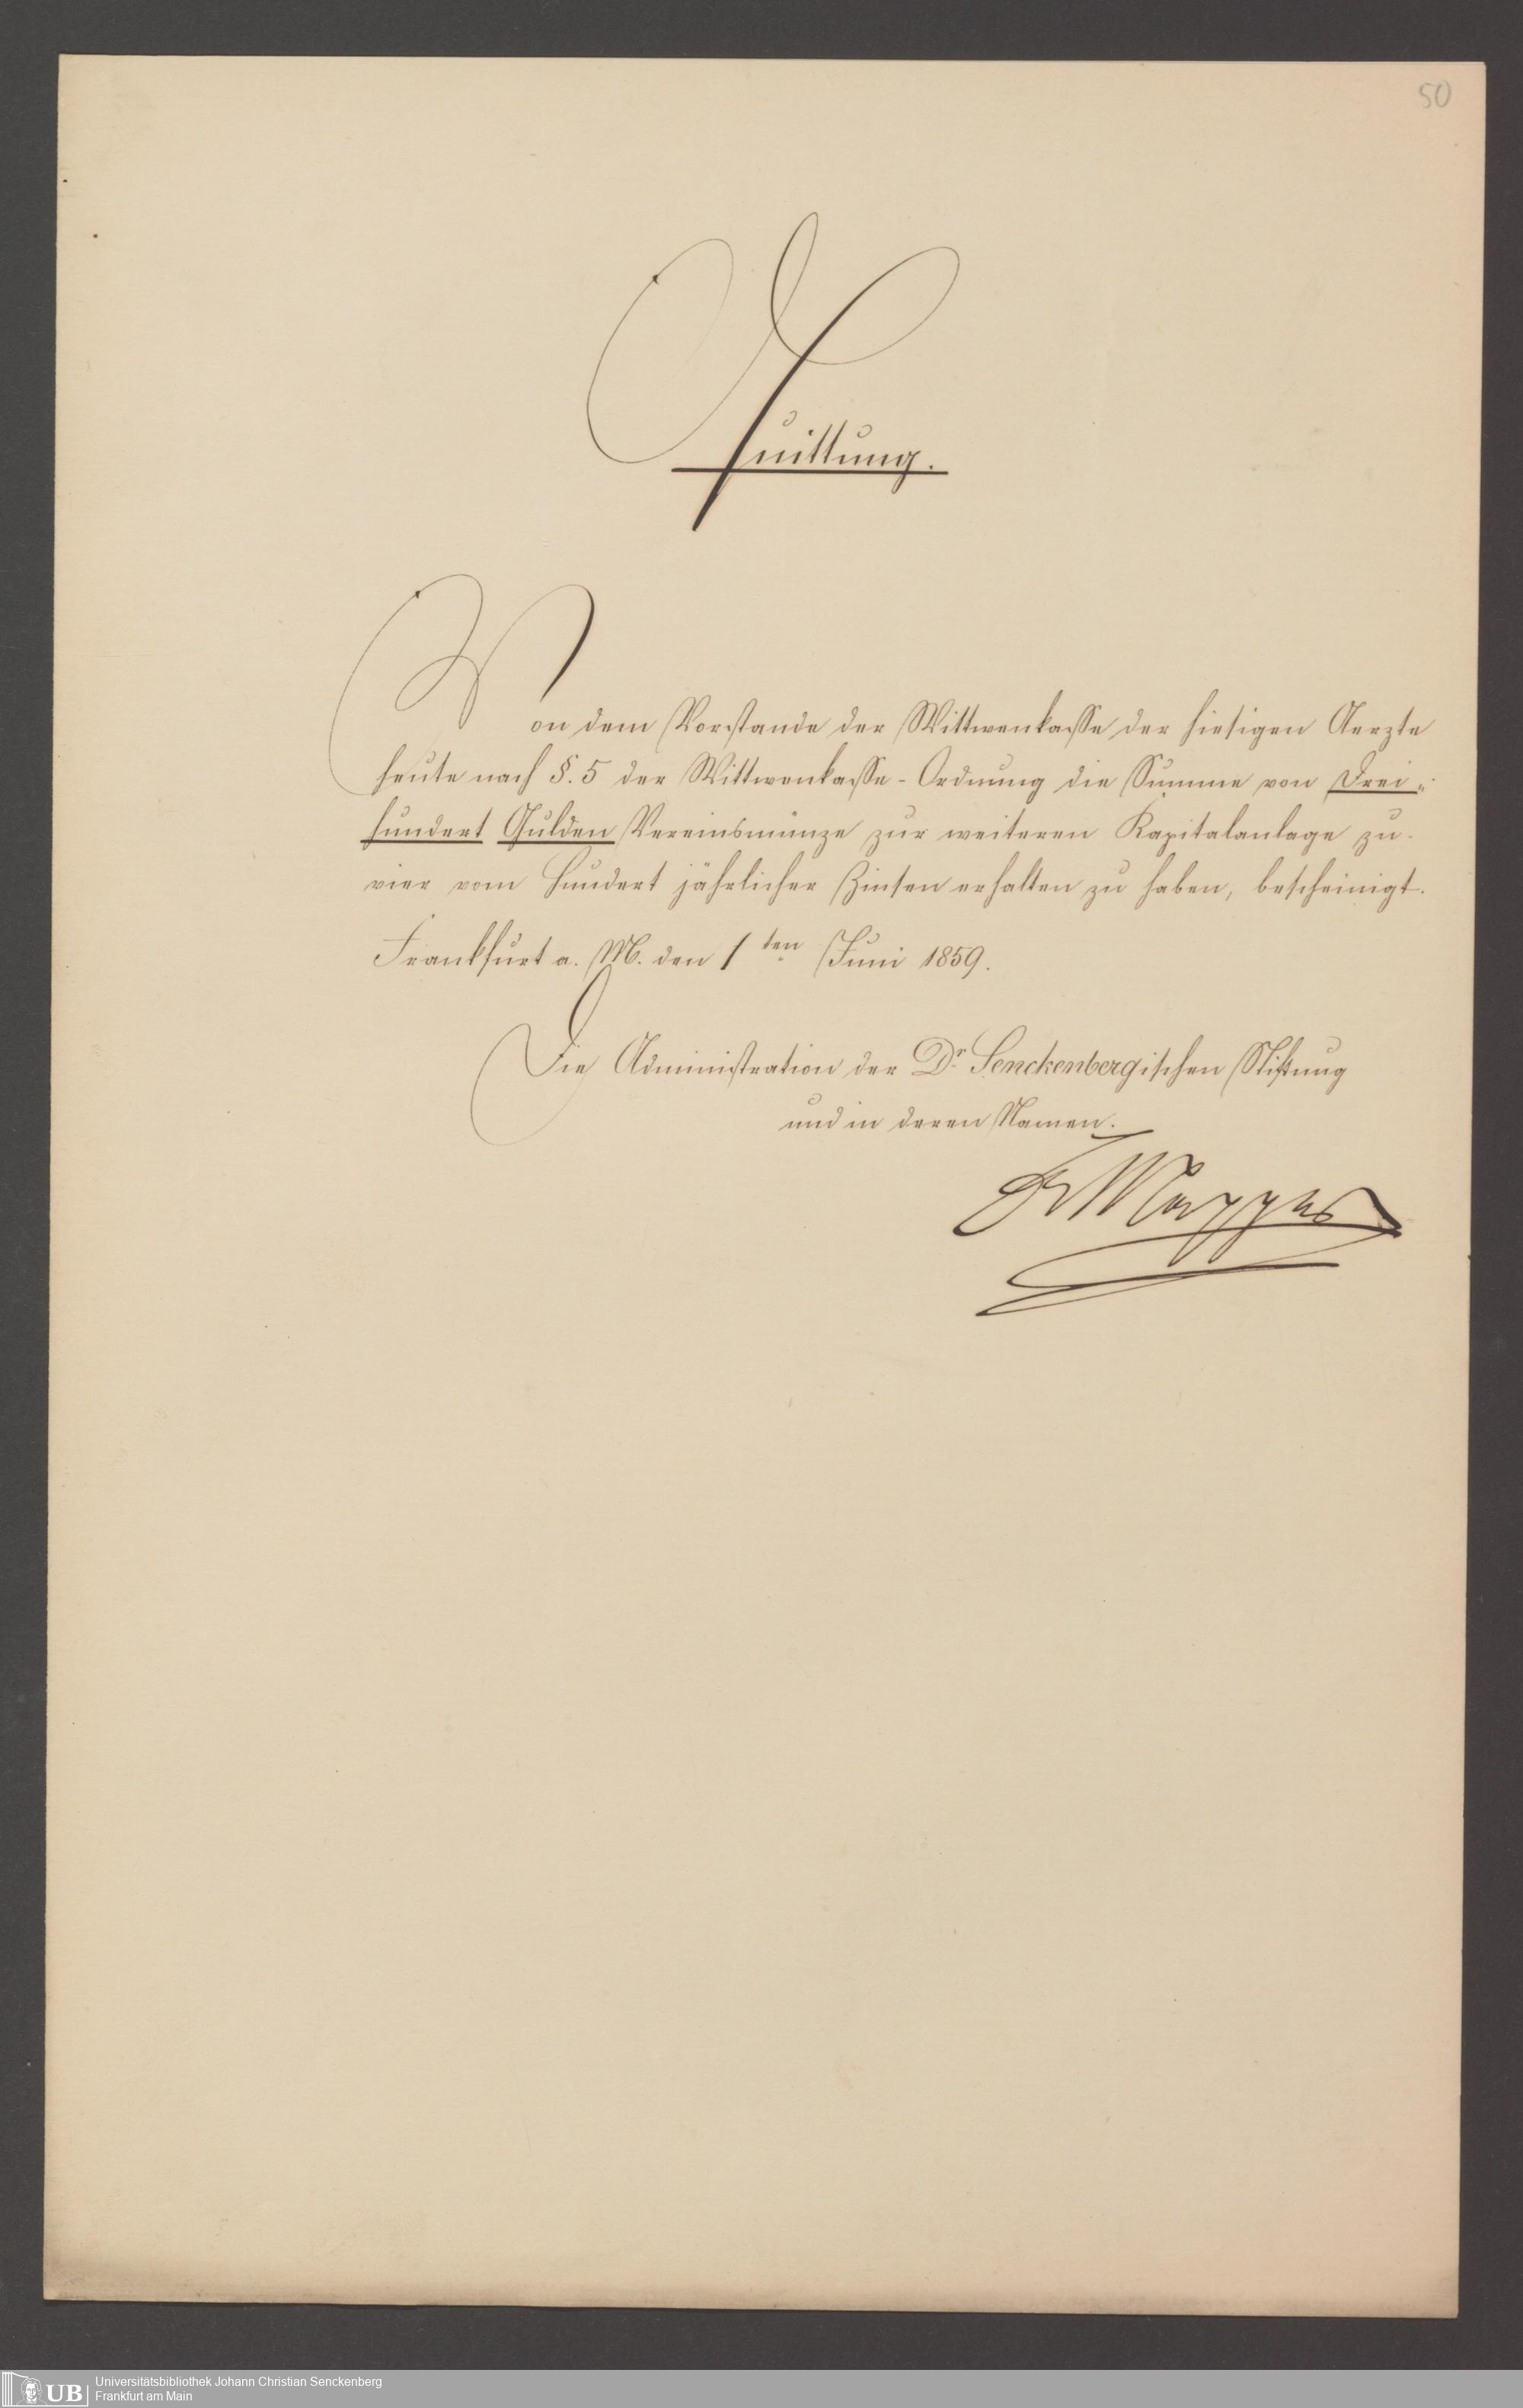 50
Quittung.
Von dem Vorstande der Wittwenkasse der hiesigen Aerzte
heute nach §. 5 der Wittwenkasse-Ordnung die Summe von Drei„
hundert Gulden Vereinsmünze zur weiteren Kapitalanlage zu
vier vom Hundert jährlicher Zinsen erhalten zu haben, bescheinigt.
Frankfurt a. M. den 1ten Juni 1859.
Die Administration der Dr Senckenbergischen Stiftung
und in deren Namen.
UB
Universitätsbibliothek Johann Christian Senckenberg
Frankfurt am Main